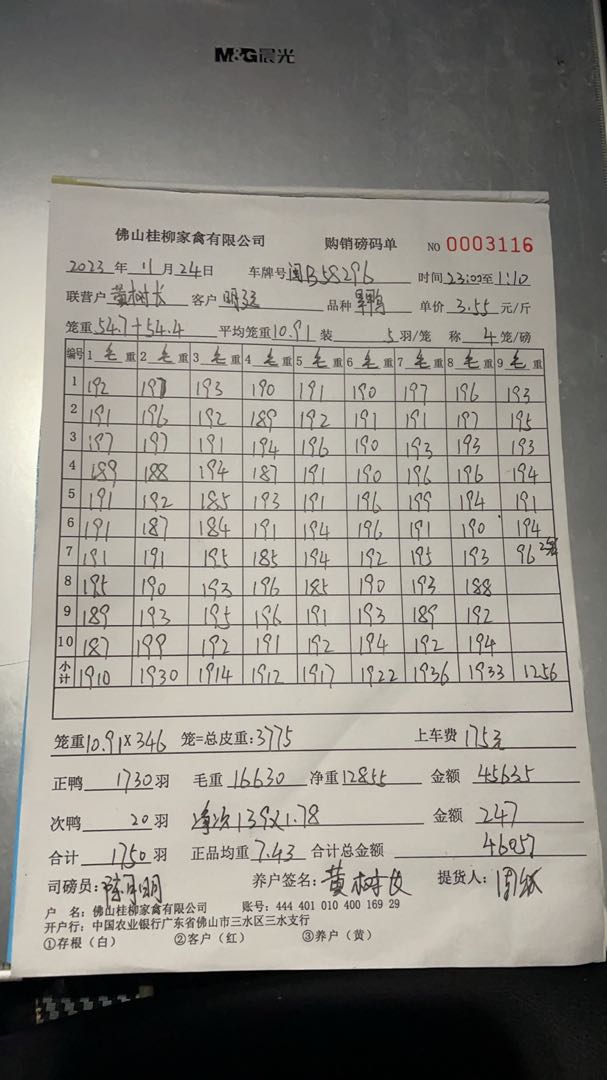 M&G晨光
佛山桂柳家禽有限公司 购销磅码单 NO 0003116
2023年11月24日 车牌号闽B58296 时间23:00至1:10
联营户黄树 客户明 品种鸭 单价3.55元/斤
笼重54.7+54.4 平均笼重10.91装 5羽/笼 称4笼/磅
编号 1毛重 2毛重 3毛重 4毛重 5毛重 6毛重 7毛重 8毛重 9毛重
1 192 197 193 190 191 190 197 196 193
2 191 196 192 189 192 191 191 197 195
3 197 197 191 194 196 190 193 193 193
4 189 188 194 187 191 190 196 196 194
5 191 192 185 193 191 196 199 194 191
6 191 187 184 191 194 196 191 190 194
7 191 191 195 185 194 192 195 193 96 2笼
8 195 190 193 196 185 190 193 188
9 189 193 195 196 191 193 189 192
10 187 199 192 191 192 194 192 194
小计 1910 1930 1914 1912 1917 1922 1936 1933 1256
笼重10.91×346 笼=总皮重:3775 上车费175元
正鸭 1730羽 毛重16630 净重12855 金额45635
次鸭 20羽 净次139×1.78 金额247
合计 1750羽 正品均重7.43 合计总金额 46057
司磅员:陈明 养户签名:黄树 提货人:周
户 名:佛山桂柳家禽有限公司 账号:444 401 010 400 169 29
开户行:中国农业银行广东省佛山市三水区三水支行
①存根(白) ②客户(红) ③养户(黄)